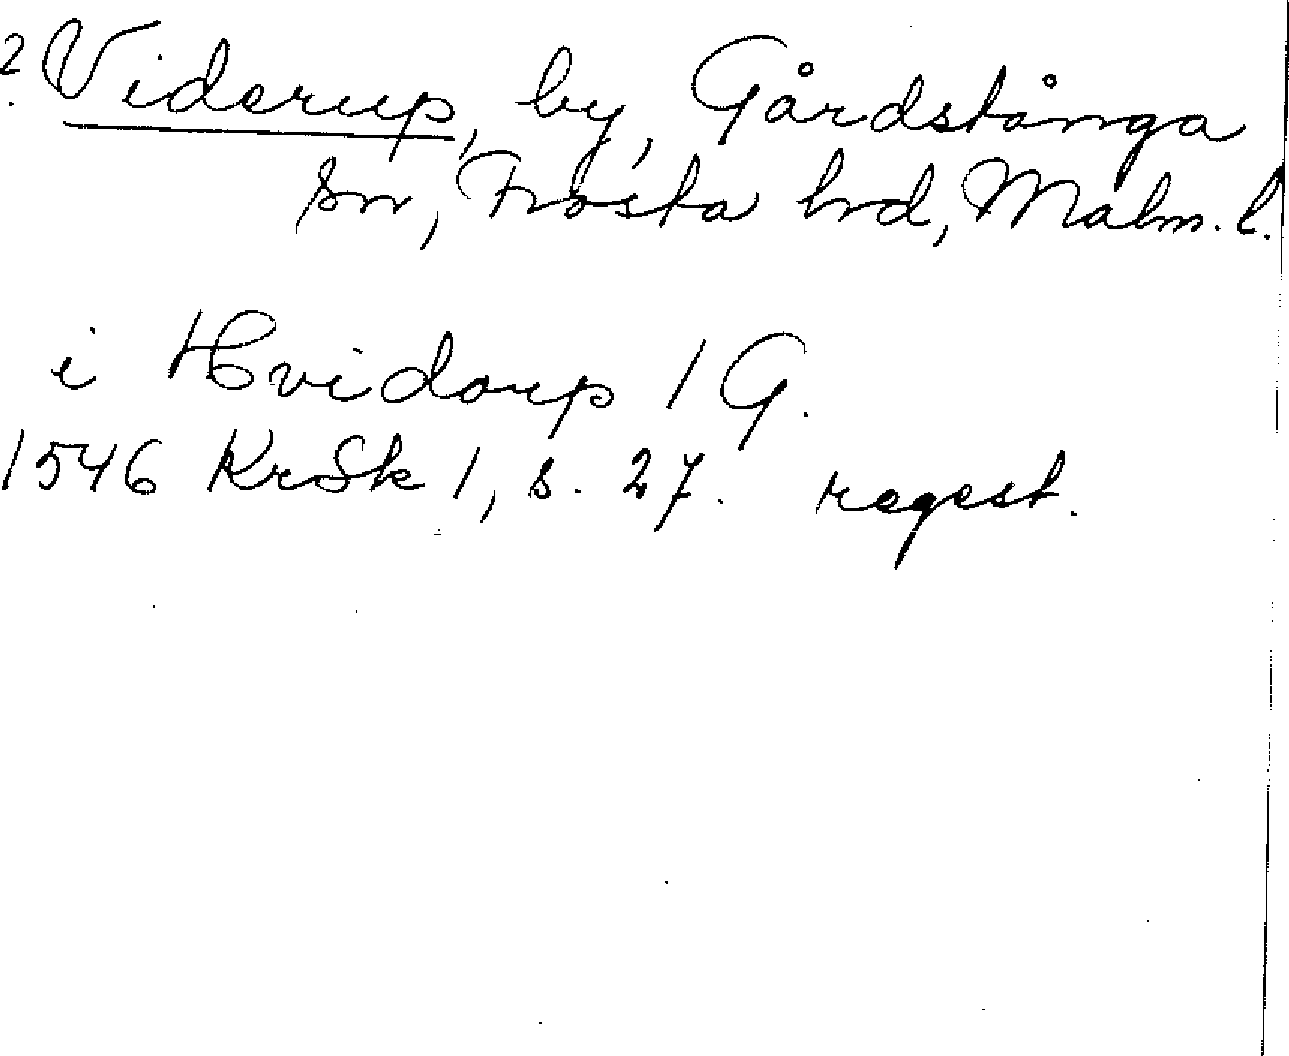 ? Viderup, by, Gårdstånga
sn, Frosta hrd, Malm. l.
i Hvidorup 1 G.
1546 KrSk 1, s. 27. regest.